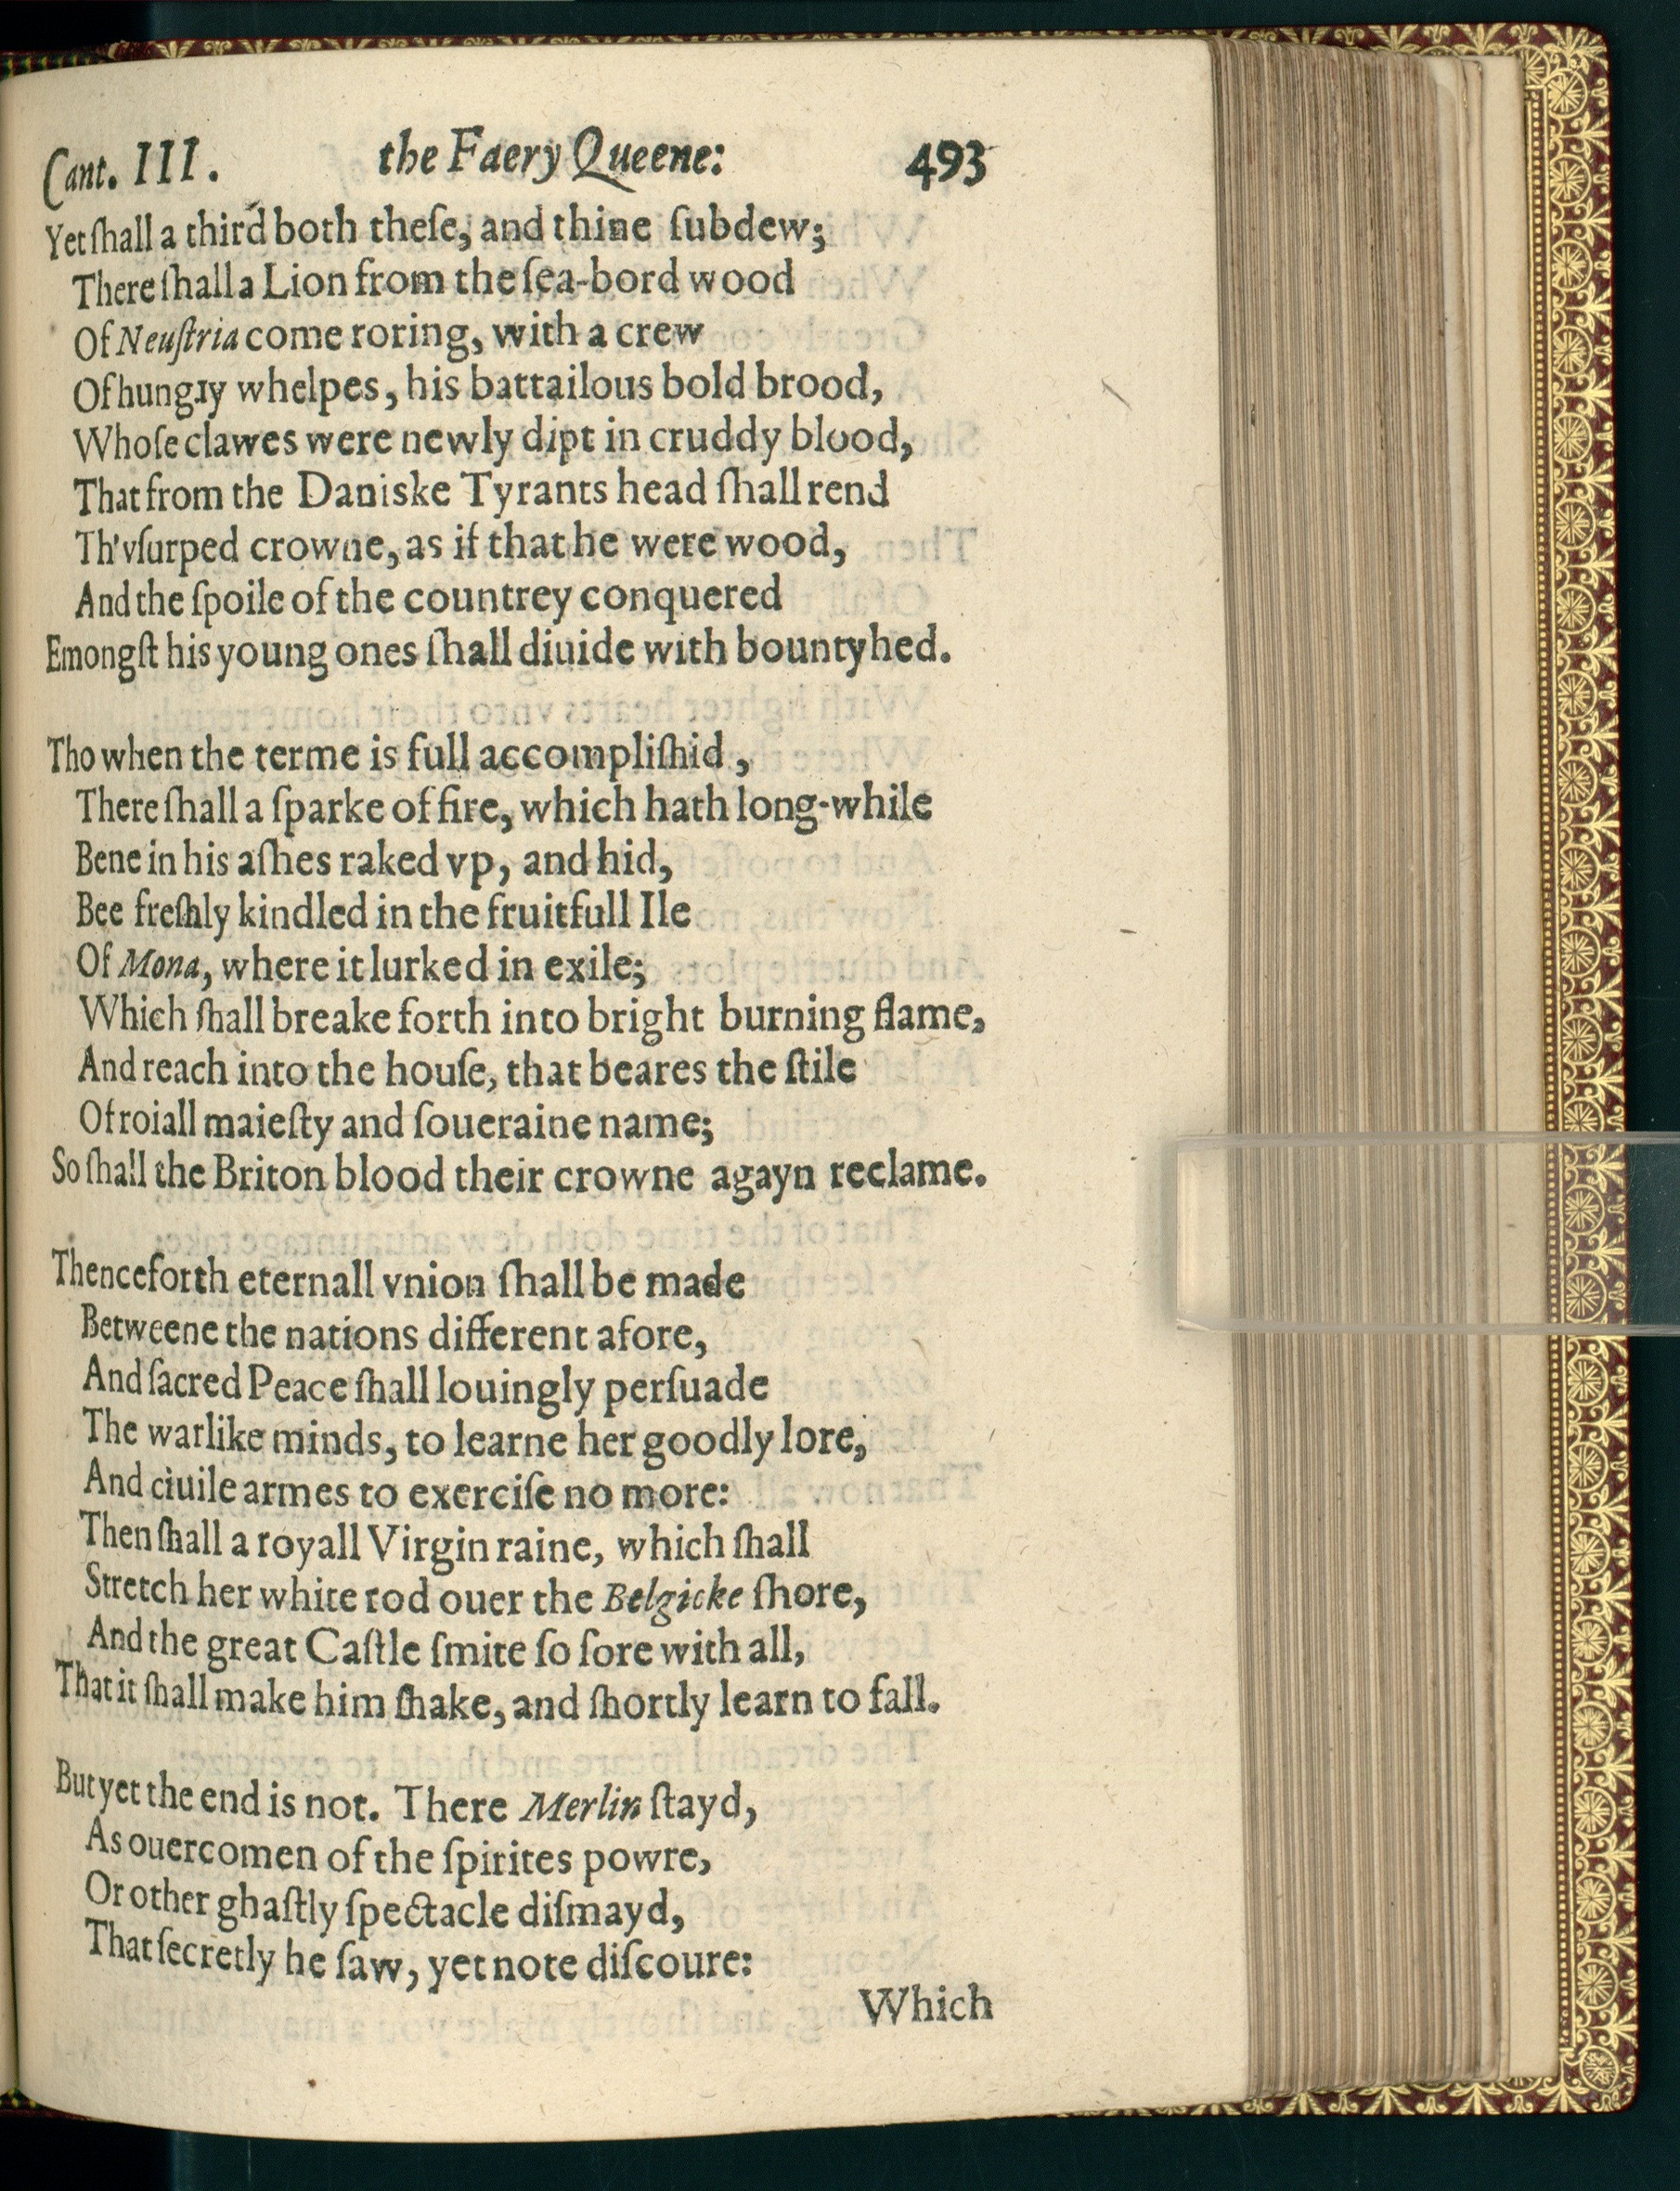 Cant. III. the Faery Queene: 493
Yet ſhall a third both theſe, and thine ſubdew;
There ſhall a Lion from the ſea-bord wood
Of Neuſtria come roring, with a crew
Of hungry whelpes, his battailous bold brood,
Whoſe clawes were newly dipt in cruddy blood,
That from the Daniske Tyrants head ſhall rend
Th'vſurped crowne, as if that he were wood,
And the ſpoile of the countrey conquered
Emongſt his young ones ſhall diuide with bountyhed.
Tho when the terme is full accompliſhid,
There ſhall a ſparke of fire, which hath long-while
Bene in his aſhes raked vp, and hid,
Bee freſhly kindled in the fruitfull Ile
Of Mona, where it lurked in exile;
Which ſhall breake forth into bright burning flame,
And reach into the houſe, that beares the ſtile
Of roiall maieſty and ſoueraine name;
So ſhall the Briton blood their crowne agayn reclame.
Thenceforth eternall vnion ſhall be made
Betweene the nations different afore,
And ſacred Peace ſhall louingly perſuade
The warlike minds, to learne her goodly lore,
And ciuile armes to exerciſe no more:
Then ſhall a royall Virgin raine, which ſhall
Stretch her white rod ouer the Belgicke ſhore,
And the great Caſtle ſmite ſo ſore with all,
That it ſhall make him ſhake, and ſhortly learn to fall.
But yet the end is not. There Merlin ſtayd,
As ouercomen of the ſpirites powre,
Or other ghaſtly ſpectacle diſmayd,
That ſecretly he ſaw, yet note diſcoure:
Which